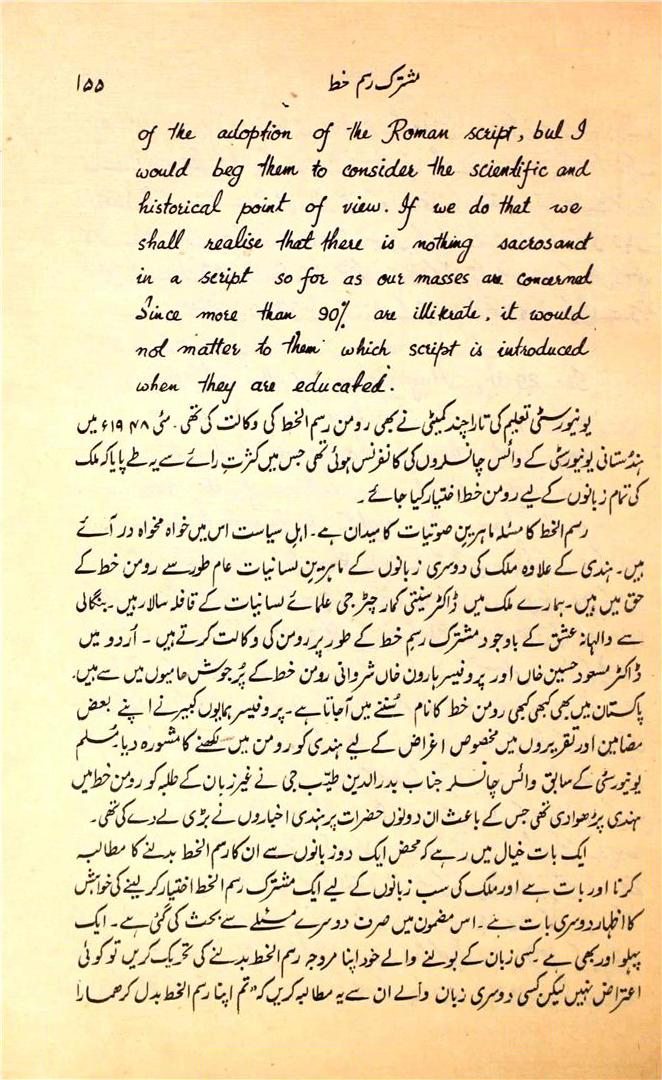 مشترک رسم خط ۱۵۵
of the adoption of the Roman script, but I
would beg them to consider the scientific and
historical point of view. If we do that we
shall realise that there is nothing sacrosanct
in a script so for as our masses are concerned
Since more than 90% are illiterate, it would
not matter to them which script is introduced
when they are educated.
یونیورسٹی تعلیم کی تارا چند کمیٹی نے بھی رومن رسم الخط کی وکالت کی تھی۔ مئی ۱۹۴۸ء میں
ہندستانی یونیورسٹی کے وائس چانسلروں کی کانفرنس ہوئی تھی جس میں کثرتِ رائے سے یہ طے پایا کہ ملک
کی تمام زبانوں کے لیے رومن خط اختیار کیا جائے۔
رسم الخط کا مسئلہ ماہرینِ صوتیات کا میدان ہے۔ اہلِ سیاست اس میں خواہ مخواہ در آئے
ہیں۔ ہندی کے علاوہ ملک کی دوسری زبانوں کے ماہرینِ لسانیات عام طور سے رومن خط کے
حق میں ہیں۔ ہمارے ملک میں ڈاکٹر سنیتی کمار چٹرجی علمائے لسانیات کے قافلہ سالار ہیں۔ بنگالی
سے والہانہ عشق کے باوجود مشترک رسمِ خط کے طور پر رومن کی وکالت کرتے ہیں۔ اُردو میں
ڈاکٹر مسعود حسین خاں اور پروفیسر ہارون خاں شروانی رومن خط کے پُرجوش حامیوں میں سے ہیں۔
پاکستان میں بھی کبھی کبھی رومن خط کا نام سُننے میں آجاتا ہے۔ پروفیسر ہمایوں کبیر نے اپنے بعض
مضامین اور تقریروں میں مخصوص اغراض کے لیے ہندی کو رومن میں لکھنے کا مشورہ دیا۔ مُسلم
یونیورسٹی کے سابق وائس چانسلر جناب بدرالدین طیّب جی نے غیر زبان کے طلبہ کو رومن خط میں
ہندی پڑھوادی تھی جس کے باعث ان دونوں حضرات پر ہندی اخباروں نے بڑی لے دے کی تھی۔
ایک بات خیال میں رہے کہ محض ایک دو زبانوں سے ان کا رسم الخط بدلنے کا مطالبہ
کرنا اور بات ہے اور ملک کی سب زبانوں کے لیے ایک مشترک رسم الخط اختیار کر لینے کی خواہش
کا اظہار دوسری بات ہے۔ اس مضمون میں صرف دوسرے مسئلے سے بحث کی گئی ہے۔ ایک
پہلو اور بھی ہے کسی زبان کے بولنے والے خود اپنا مروجہ رسم الخط بدلنے کی تحریک کریں تو کوئی
اعتراض نہیں لیکن کسی دوسری زبان والے ان سے یہ مطالبہ کریں کہ "تم اپنا رسم الخط بدل کر ہمارا